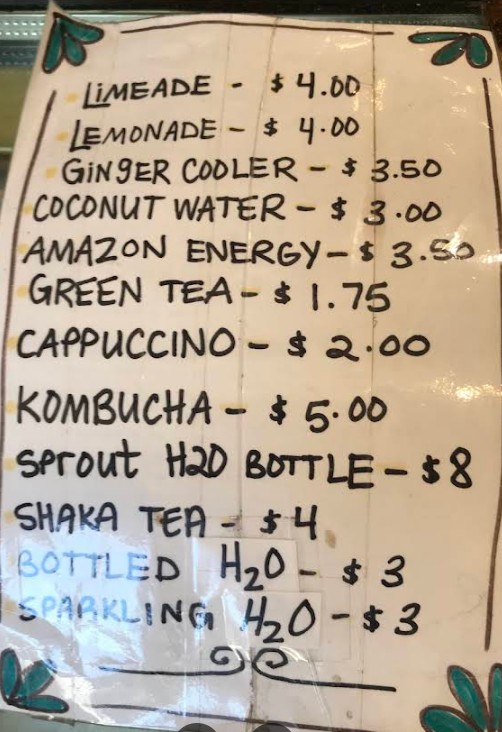 LIMEADE - $4.00
LEMONADE - $ 4.00
GINGER COOLER - $ 3.50
COCONUT WATER - $ 3.00
AMAZON ENERGY - $ 3.50
GREEN TEA - $ 1.75
CAPPUCCINO - $ 2.00
KOMBUCHA - $ 5.00
SProut H2O BOTTLE - $8
SHAKA TEA - $4
BOTTLED H₂O - $ 3
SPARKLING H₂O - $3